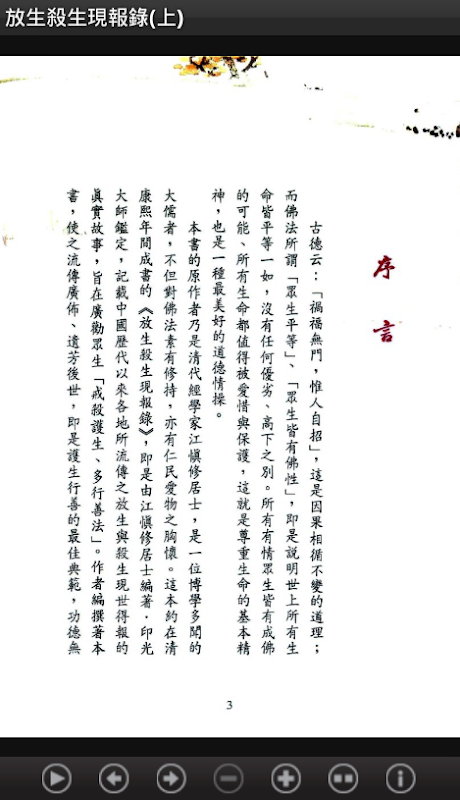 放生殺生現報錄(上)
序言
古德云：「禍福無門，惟人自招」，這是因果相循不變的道理；
而佛法所謂「眾生平等」、「眾生皆有佛性」，即是說明世上所有生
命皆平等一如，沒有任何優劣、高下之別。所有有情眾生皆有成佛
的可能、所有生命都值得被愛惜與保護，這就是尊重生命的基本精
神，也是一種最美好的道德情操。
本書的原作者乃是清代經學家江慎修居士，是一位博學多聞的
大儒者，不但對佛法素有修持，亦有仁民愛物之胸懷。這本約在清
康熙年間成書的《放生殺生現報錄》，即是由江慎修居士編著．印光
大師鑑定，記載中國歷代以來各地所流傳之放生與殺生現世得報的
真實故事，旨在廣勸眾生「戒殺護生、多行善法」。作者編撰著本
書，使之流傳廣佈、遺芳後世，即是護生行善的最佳典範，功德無
3